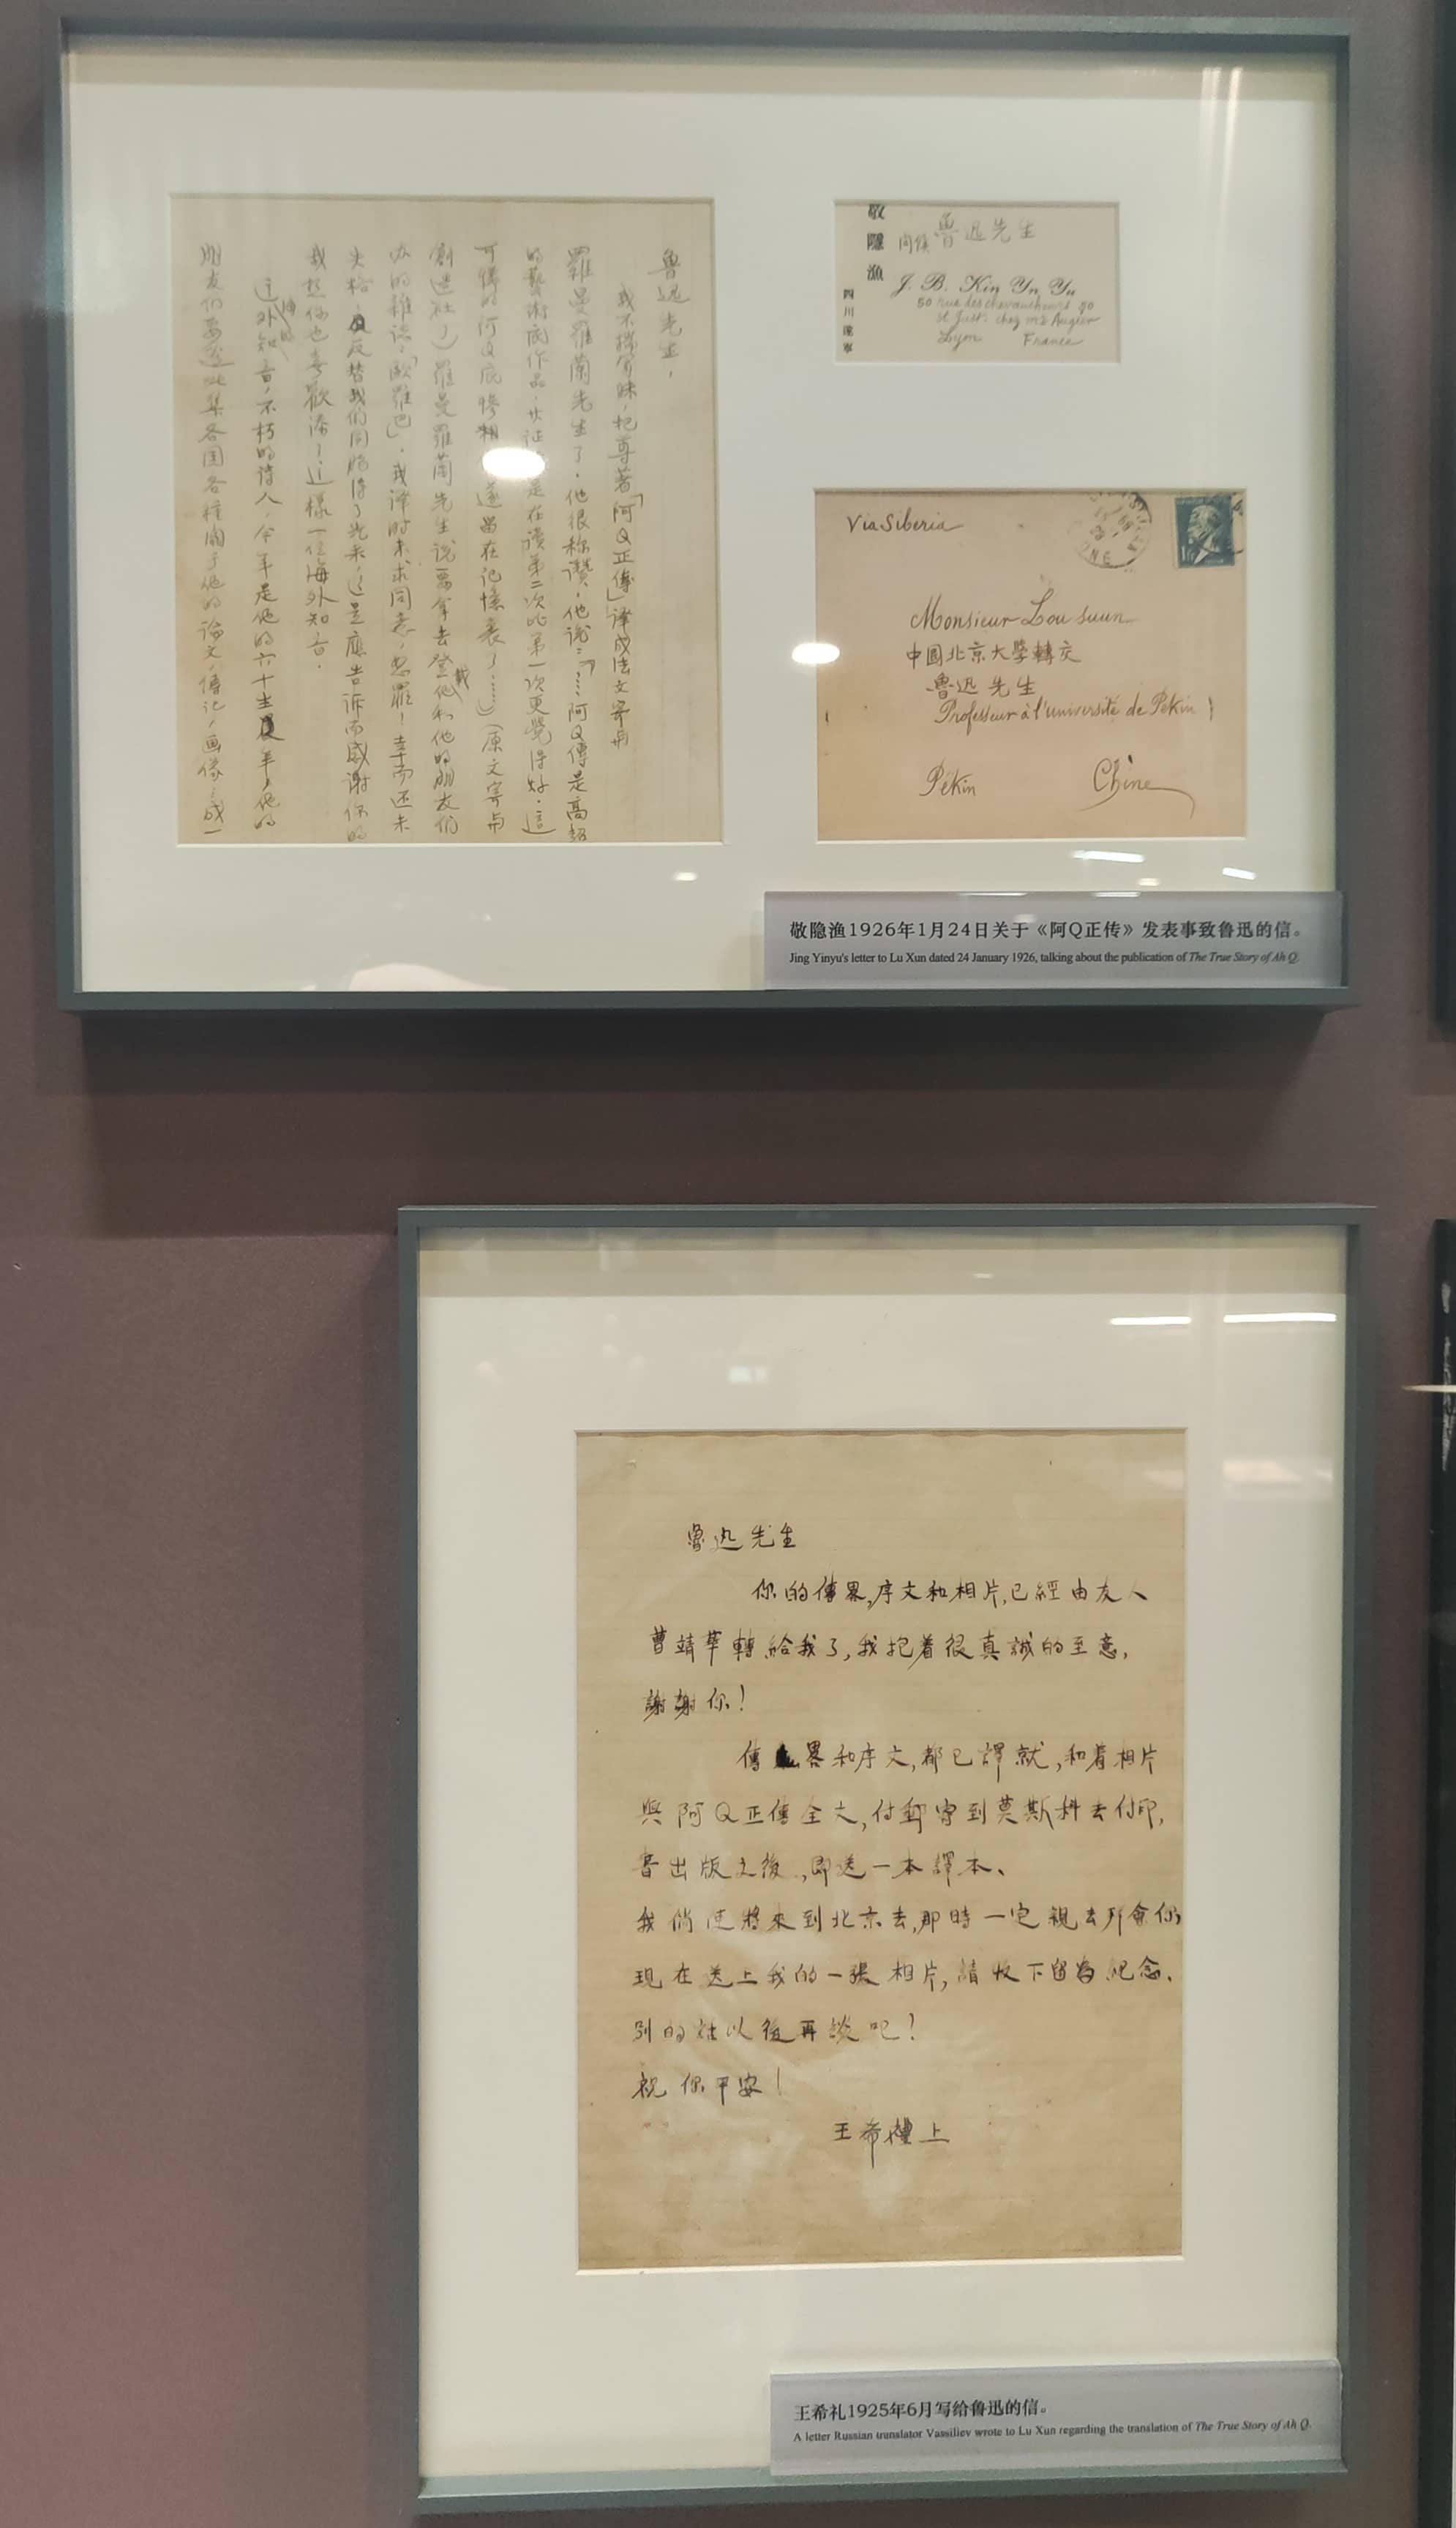 魯迅先生，
我不揣冒昧，把尊著「阿Q正傳」譯成法文寄与
羅曼羅蘭先生了。他很称讚。他说：「……阿Q傳是高超
的藝術底作品，其证 是在读第二次比第一次更覺得好。這
可憐的阿Q底惨相 遂留在记憶裹了……」（原文寄与
創造社了）羅曼羅蘭先生说要拿去登載他和他的朋友们
办的雜誌：「歐羅巴」。我译时未求同意，恕罪！幸而还未
失格，反替我们同胞得了光采，這是應告诉而感谢你的
我想你也喜歡添了這樣一位海外知音。
這海外知音，不朽的诗人，今年是他的六十生年，他的
朋友们要 此集各国各种関于他的论文，傳记，画像，成一
敬隱漁
四川遂寧
問候 魯迅先生
J. B. Kin Yn Yu
50 rue des chevaucheurs 50
St Just. chez Mr Augier
Lyon France
Via Siberia
Monsieur Lou Suun
中國北京大學轉交
魯迅先生
Professeur à l'université de Pékin
Pékin Chine
敬隐渔1926年1月24日关于《阿Q正传》发表事致鲁迅的信。
Jing Yinyu's letter to Lu Xun dated 24 January 1926, talking about the publication of The True Story of Ah Q.
魯迅先生
你的傳畧,序文和相片,已經由友人
曹靖華轉給我了,我抱着很真誠的至意,
謝謝你!
傳畧和序文,都已譯就,和着相片
與阿Q正傳全文,付郵寄到莫斯科去付印,
書出版之後,即送一本譯本、
我倘使將來到北京去,那時一定親去拜會你
現在送上我的一張相片,請收下留為紀念、
别的話以後再談吧!
祝你平安!
王希禮上
王希礼1925年6月写给鲁迅的信。
A letter Russian translator Vassiliev wrote to Lu Xun regarding the translation of The True Story of Ah Q.